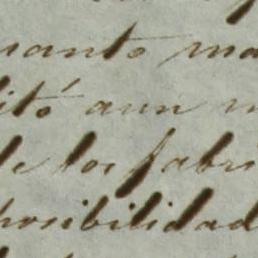 uanto ma
itó aun m
de los fabri
posibilidad